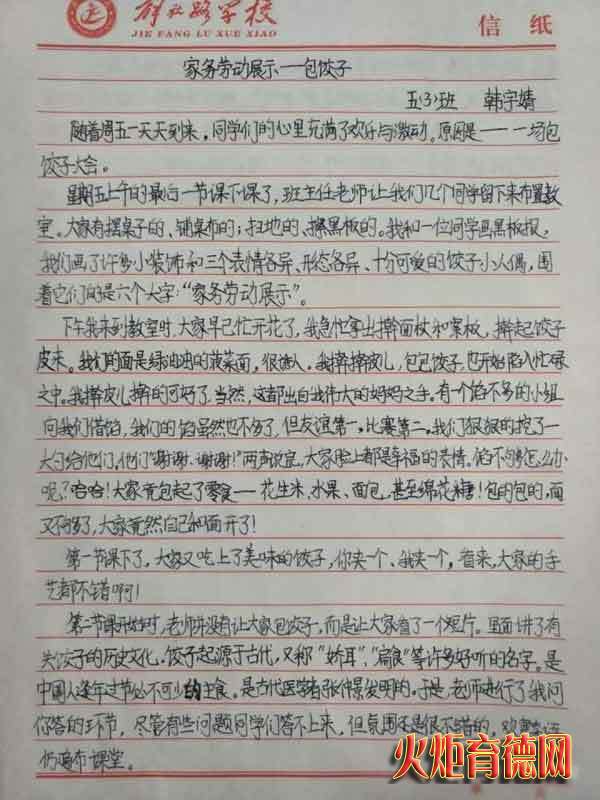 解放路学校
JIE FANG LU XUE XIAO
信 纸
家务劳动展示——包饺子
五(3)班 韩宇婧
随着周五一天天到来,同学们的心里充满了欢乐与激动。原因是——一场包
饺子大会。
星期五上午的最后一节课下课了,班主任老师让我们几个同学留下来布置教
室。大家有摆桌子的、铺桌布的;扫地的、擦黑板的。我和一位同学画黑板报,
我们画了许多小装饰和三个表情各异、形态各异、十分可爱的饺子小人偶,围
着它们的是六个大字:“家务劳动展示”。
下午我来到教室时,大家早已忙开花了,我急忙拿出擀面杖和案板,擀起饺子
皮来。我们的面是绿油油的菠菜面,很诱人。我擀擀皮儿,包包饺子,也开始陷入忙碌
之中。我擀皮儿擀的可好了,当然,这都出自我伟大的妈妈之手。有个馅不多的小组
向我们借馅,我们的馅虽然也不多了,但友谊第一,比赛第二。我们狠狠的挖了一
大勺给他们,他们“谢谢、谢谢!”两声说完,大家脸上都是幸福的表情。馅不够怎么办
呢?哈哈!大家竟包起了零食——花生米、水果、面包,甚至绵花糖!包的包的,面
又不够了,大家竟然自己和面开了!
第一节课下了,大家又吃上了美味的饺子,你夹一个、我夹一个,看来,大家的手
艺都不错啊!
第二节课开始时,老师并没有让大家包饺子,而是让大家看了一个短片。里面讲了有
关饺子的历史文化,饺子起源于古代,又称“娇耳”、“扁食”等许多好听的名字。是
中国人逢年过节必不可少的主食。是古代医学者张仲景发明的,于是,老师进行了我问
你答的环节,尽管有些问题同学们答不上来,但氛围还是很不错的,欢声笑语
仍遍布课堂。
火炬育德网